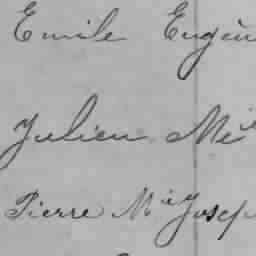 Emile Eugèn
Julien Mie
Pierre Mie Josep